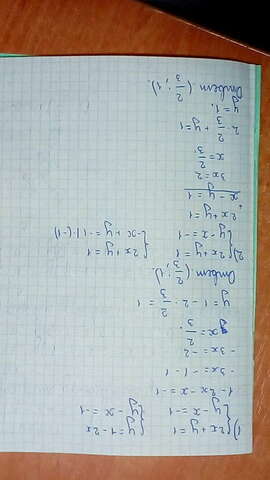 1) {2x+y=1 {y=1-2x
{y-x=-1 {y-x=-1
1-2x-x=-1
-3x=-1-1
-3x=-2
x=2/3.
y=1-2·2/3=1
Ответ (2/3; 1).
2) {2x+y=1 {2x+y=1
{y-x=-1 {-x+y=-1 | ·(-1)
2x+y=1
x-y=1
3x=2
x=2/3.
2·2/3+y=1
y=1.
Ответ (2/3; 1).